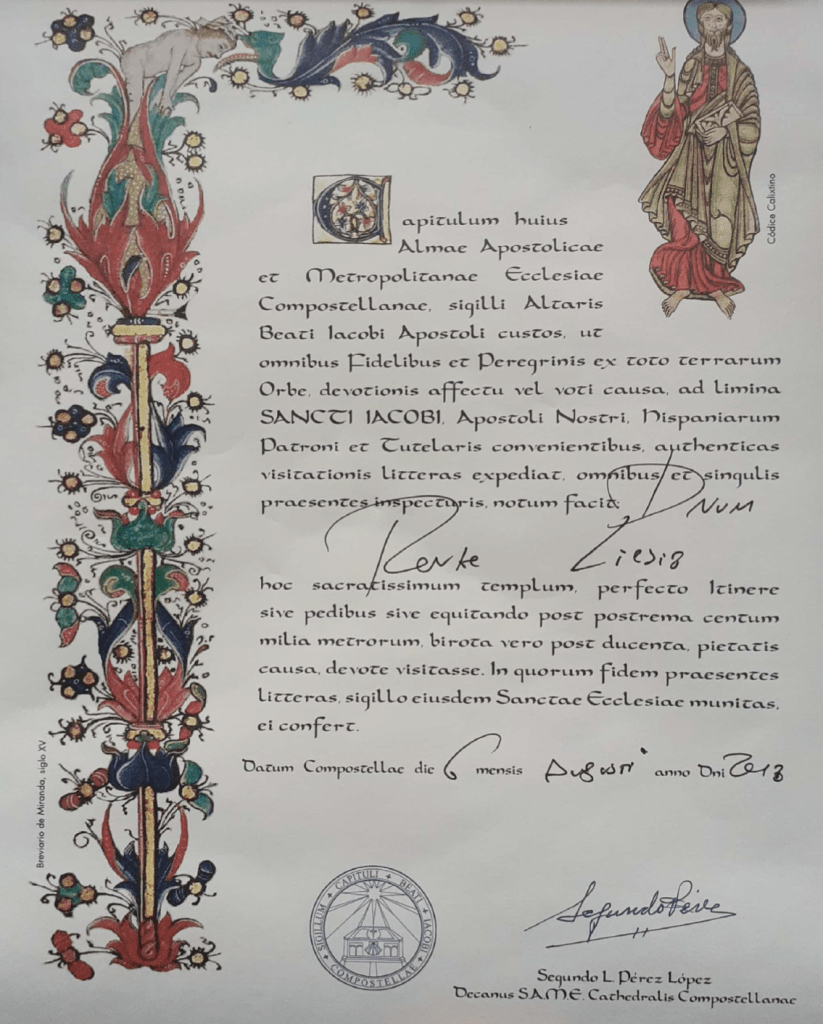 Códice Calixtino
Capitulum huius
Almae Apostolicae
et Metropolitanae Ecclesiae
Compostellanae, sigilli Altaris
Beati Iacobi Apostoli custos, ut
omnibus Fidelibus et Peregrinis ex toto terrarum
Orbe, devotionis affectu vel voti causa, ad limina
SANCTI IACOBI, Apostoli Nostri, Hispaniarum
Patroni et Tutelaris convenientibus, authenticas
visitationis litteras expediat, omnibus et singulis
praesentes inspecturis, notum facit: DNUM
hoc sacratissimum templum, perfecto Itinere
sive pedibus sive equitando post postrema centum
milia metrorum, birota vero post ducenta, pietatis
causa, devote visitasse. In quorum fidem praesentes
litteras, sigillo eiusdem Sanctae Ecclesiae munitas,
ei confert.
Datum Compostellae die 6 mensis Augusti anno Dni 2018
Breviario de Miranda, siglo XV
SIGILLUM CAPITULI BEATI IACOBI COMPOSTELLAE
Segundo Pérez
Segundo L. Pérez López
Decanus S.A.M.E. Cathedralis Compostellanae